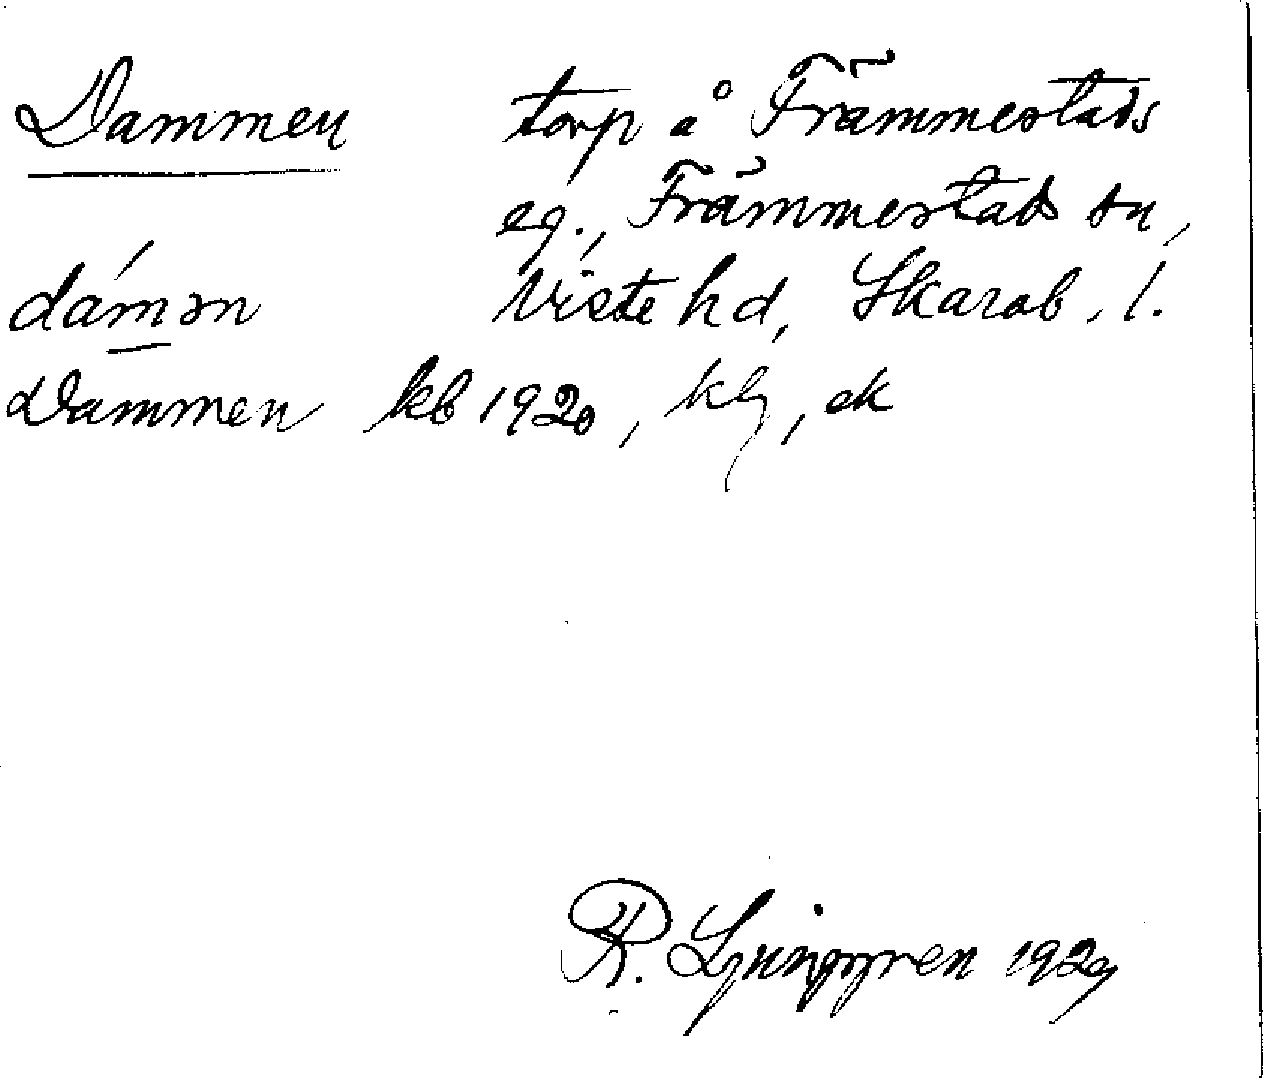 Dammen torp å Främmestads
eg., Främmestads sn,
dámən Viste hd, Skarab. l.
Dammen kb 1920, klg, ek
R. Ljunggren 1929